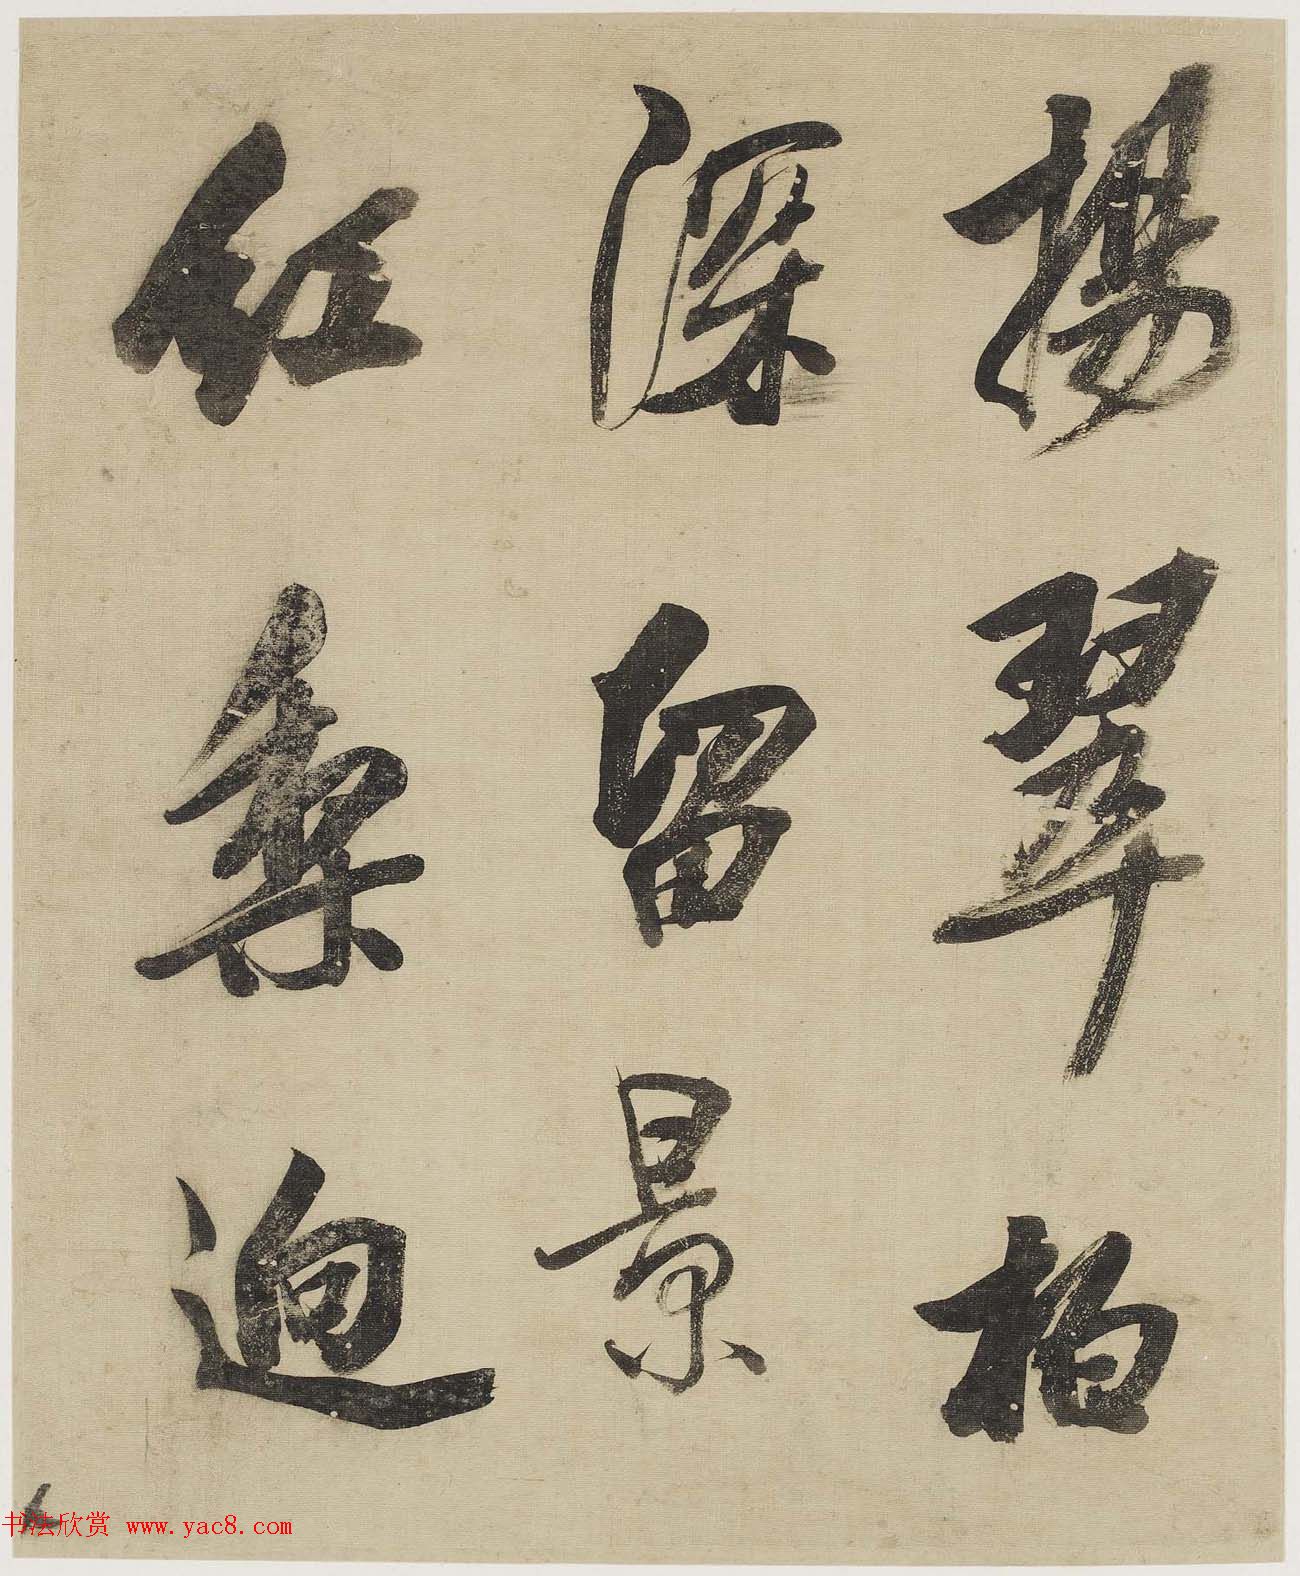 揚翠柏
深留景
紅梨逈
书法欣赏 www.yac8.com